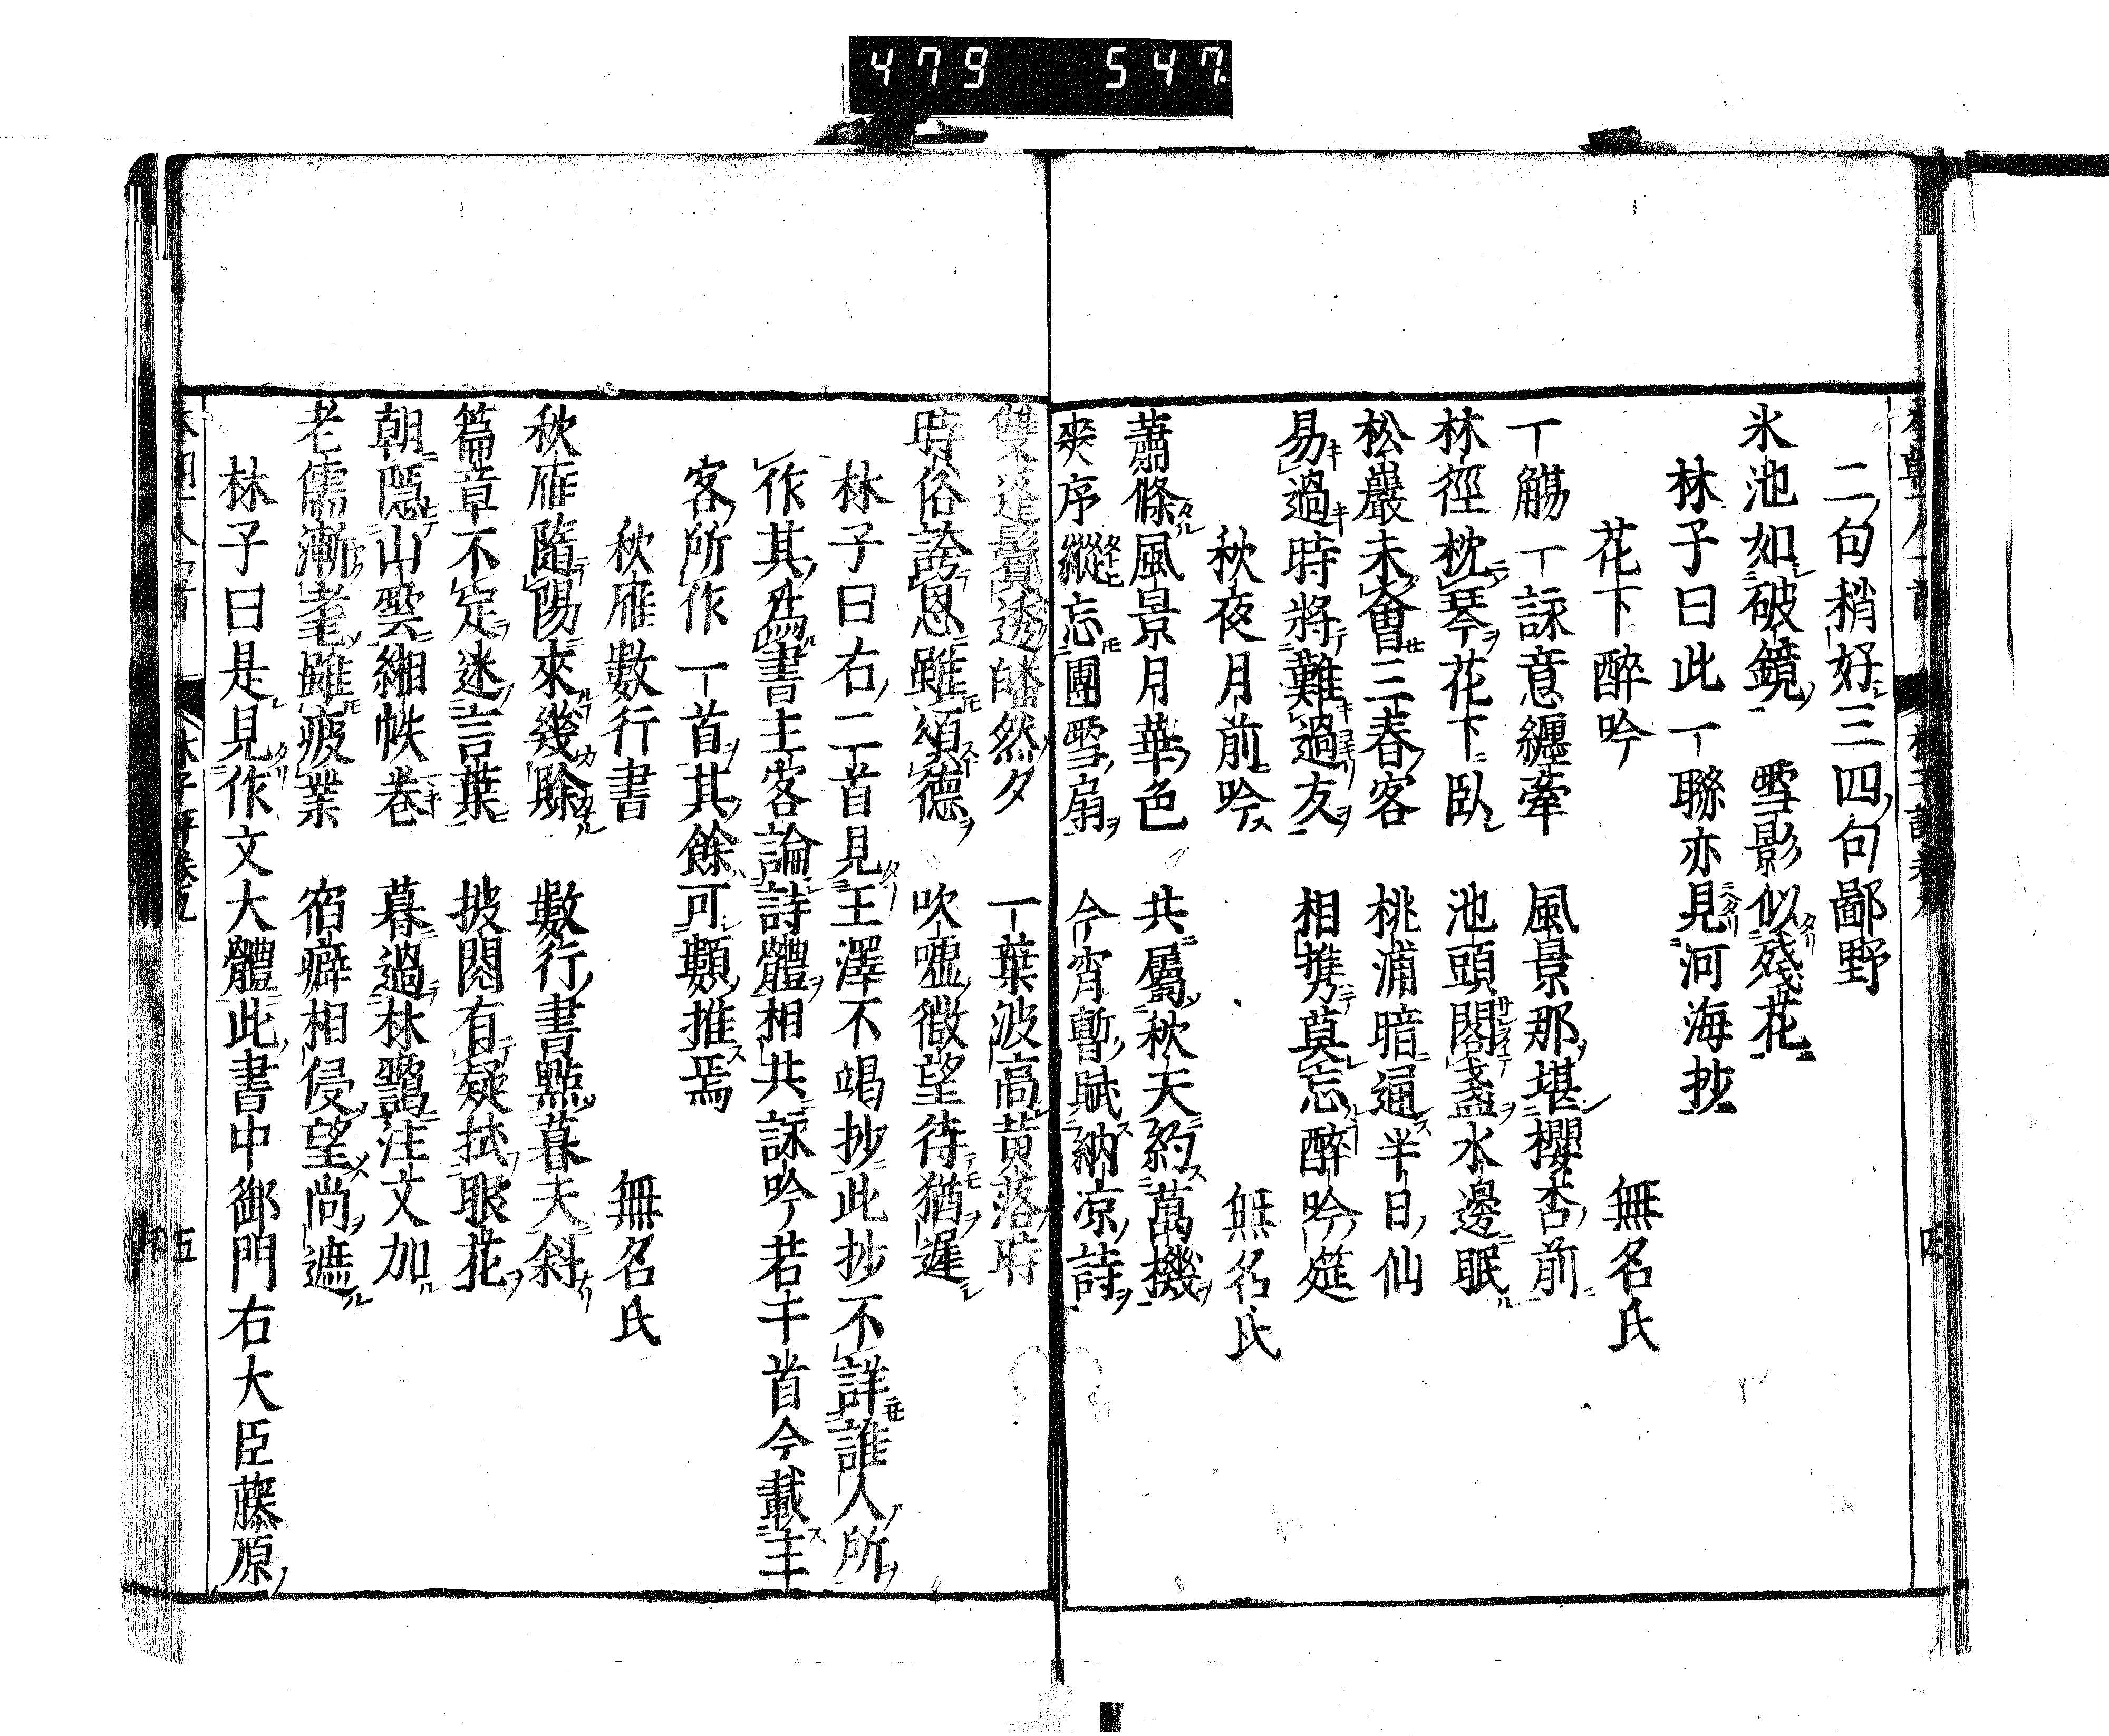 479 547.
二句稍好三四句鄙野
氷池如破鏡 雪影似殘花
林子曰此一聯亦見河海抄
花下醉吟 無名氏
一觴一詠意纏牽 風景那堪櫻杏前
林徑枕琴花下臥 池頭閣盞水邊眠
松巖未會三春客 桃浦暗通半日仙
易過時將難過友 相携莫忘醉吟筵
秋夜月前吟 無名氏
蕭條風景月華色 共屬秋天約萬機
爽序縱忘團雪扇 今宵暫賦納凉詩
雙蓬鬢透皤然夕 一葉波高黄落時
時俗誇恩雖頌德 吹噓微望待猶遲
林子曰右二首見王澤不竭抄此抄不詳誰人所
作其為書主客論詩體相共詠吟若干首今載主
客所作一首其餘可類推焉
秋雁數行書 無名氏
秋雁隨陽來幾賒 數行書點暮天斜
篇章不定迷言葉 披閱有疑拭眼花
朝隱山雲緗帙卷 暮過林靄注文加
老儒漸耄雖疲業 宿癖相侵望尚遮
林子曰是見作文大體此書中御門右大臣藤原
四
五